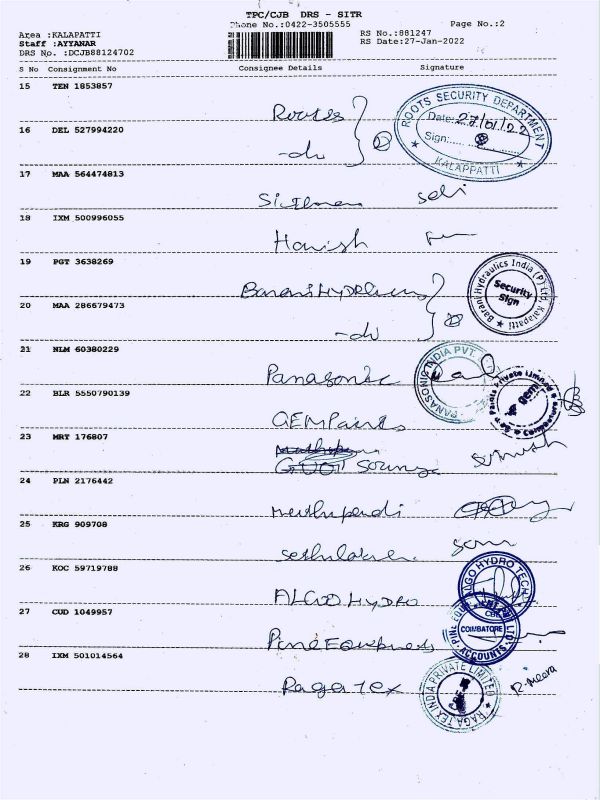 TPC/CJB DRS - SITR
Phone No.:0422-3505555
Page No.:2
Area :KALAPATTI
RS No.:881247
Staff :AYYANAR
RS Date:27-Jan-2022
DRS No. :DCJB88124702
S No Consignment No Consignee Details Signature
15 TEN 1853857
Roots
ROOTS SECURITY DEPARTMENT
Date: 27/01/22
Sign:
KALAPPATTI
16 DEL 527994220
-do
17 MAA 564474813
18 IXM 500996055
Harish
19 PGT 3638269
Barani Hydraulics
Barani Hydraulics India (P) Ltd, Kalapatti
Security
Sign
20 MAA 286679473
-do
21 NLM 60380229
Panasonic
PANASONIC INDIA PVT.
22 BLR 5550790139
GEM Paints
gem
23 MRT 176807
24 PLN 2176442
Muthupandi
25 KRG 909708
26 KOC 59719788
ALGO HYDRO
ALGO HYDRO TECH
27 CUD 1049957
Pine Equipments
COIMBATORE
ACCOUNTS
28 IXM 501014564
Ragatex
RAGATEX INDIA PRIVATE LIMITED
R. Meera